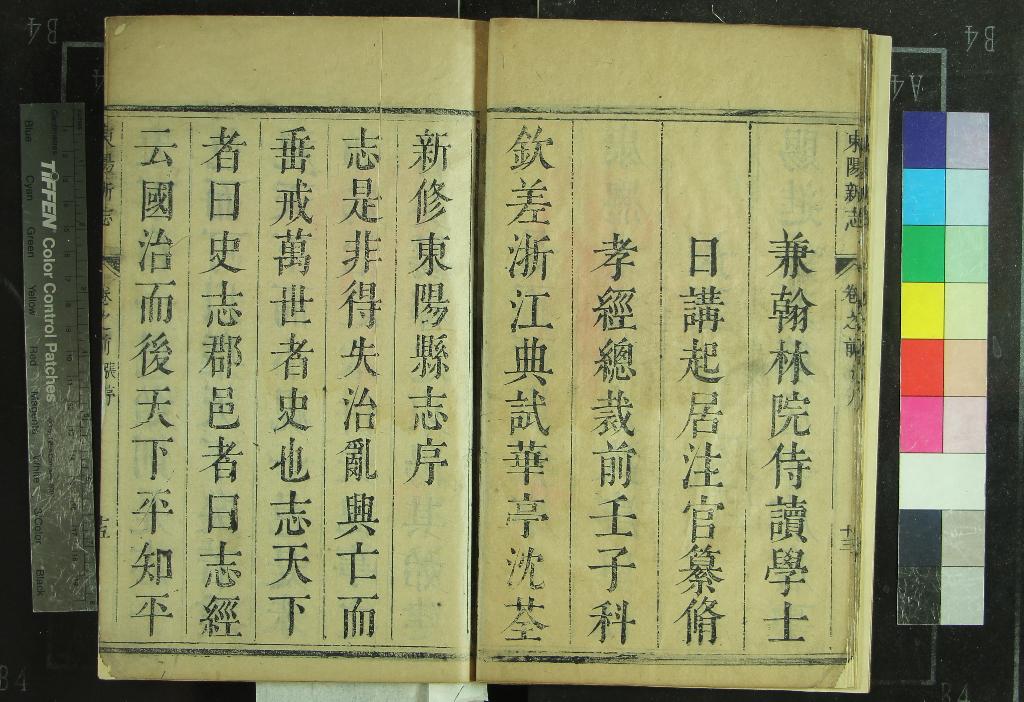 兼翰林院侍讀學士
日講起居注官纂脩
孝經總裁前壬子科
欽差浙江典試華亭沈荃
新修東陽縣志序
志是非得失治亂興亡而
垂戒萬世者史也志天下
者曰史志郡邑者曰志經
云國治而後天下平知平
東陽新志
卷之前
十三
TIFFEN Color Control Patches
Blue
Cyan
Green
Yellow
Red
Magenta
White
3/Color
Black
B4
B4
A4
B4
B4